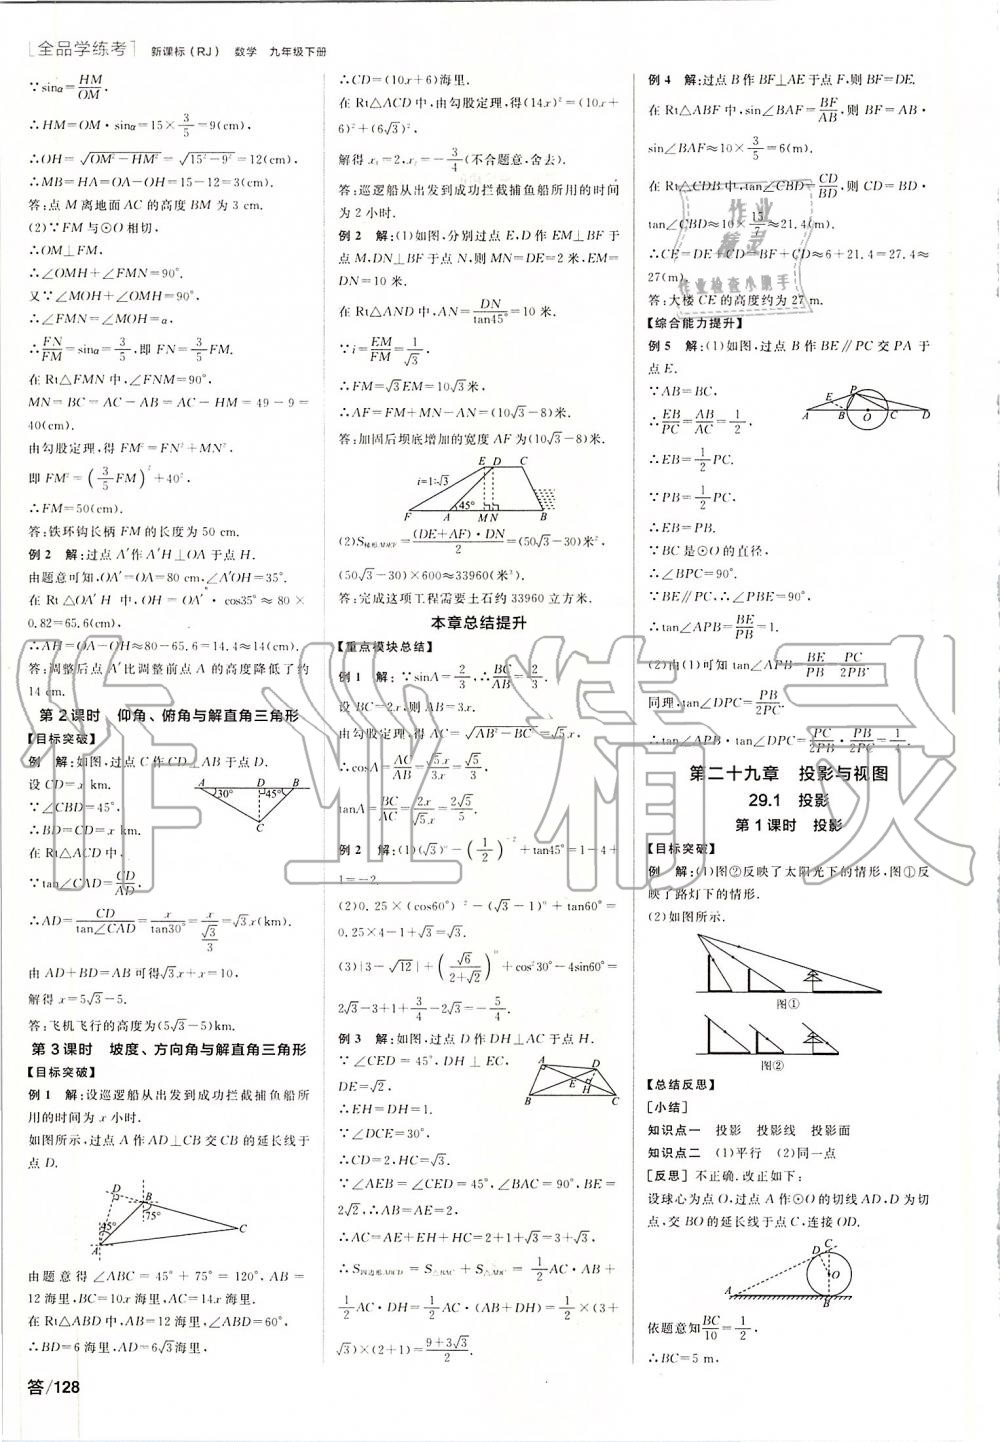 全品学练考 新课标(RJ) 数学 九年级下册
∵sinα=HM/OM,
∴HM=OM·sinα=15×3/5=9(cm),
∴OH=√(OM²-HM²)=√(15²-9²)=12(cm),
∴MB=HA=OA-OH=15-12=3(cm).
答:点M离地面AC的高度BM为3 cm.
(2)∵FM与⊙O相切,
∴OM⊥FM,
∴∠OMH+∠FMN=90°.
又∵∠MOH+∠OMH=90°,
∴∠FMN=∠MOH=α,
∴FN/FM=sinα=3/5,即FN=3/5FM.
在Rt△FMN中,∠FNM=90°,
MN=BC=AC-AB=AC-HM=49-9=
40(cm).
由勾股定理,得FM²=FN²+MN²,
即FM²=(3/5FM)²+40²,
∴FM=50(cm).
答:铁环钩长柄FM的长度为50 cm.
例2 解:过点A′作A′H⊥OA于点H.
由题意可知,OA′=OA=80 cm,∠A′OH=35°.
在Rt△OA′H中,OH=OA′·cos35°≈80×
0.82=65.6(cm),
∴AH=OA-OH≈80-65.6=14.4≈14(cm).
答:调整后点A′比调整前点A的高度降低了约
14 cm.
第2课时 仰角、俯角与解直角三角形
【目标突破】
例 解:如图,过点C作CD⊥AB于点D.
设CD=x km.
∵∠CBD=45°,
∴BD=CD=x km.
在Rt△ACD中,
∵tan∠CAD=CD/AD,
∴AD=CD/tan∠CAD=x/tan30°=x/(√3/3)=√3x(km).
由AD+BD=AB可得√3x+x=10,
解得x=5√3-5.
答:飞机飞行的高度为(5√3-5)km.
A 30° D B 45° C
第3课时 坡度、方向角与解直角三角形
【目标突破】
例1 解:设巡逻船从出发到成功拦截捕鱼船所
用的时间为x小时.
如图所示,过点A作AD⊥CB交CB的延长线于
点D.
D B 45° 75° A C
由题意得∠ABC=45°+75°=120°,AB=
12海里,BC=10x海里,AC=14x海里.
在Rt△ABD中,AB=12海里,∠ABD=60°,
∴BD=6海里,AD=6√3海里,
∴CD=(10x+6)海里.
在Rt△ACD中,由勾股定理,得(14x)²=(10x+
6)²+(6√3)²,
解得x₁=2,x₂=-3/4(不合题意,舍去).
答:巡逻船从出发到成功拦截捕鱼船所用的时间
为2小时.
例2 解:(1)如图,分别过点E,D作EM⊥BF于
点M,DN⊥BF于点N,则MN=DE=2米,EM=
DN=10米.
在Rt△AND中,AN=DN/tan45°=10米.
∵i=EM/FM=1/√3,
∴FM=√3EM=10√3米,
∴AF=FM+MN-AN=(10√3-8)米.
答:加固后坝底增加的宽度AF为(10√3-8)米.
E D C i=1:√3 45° F A M N B
(2)S梯形ADEF=(DE+AF)·DN/2=(50√3-30)米²,
(50√3-30)×600≈33960(米³).
答:完成这项工程需要土石约33960立方米.
本章总结提升
【重点模块总结】
例1 解:∵sinA=2/3,∴BC/AB=2/3,
设BC=2x,则AB=3x.
由勾股定理,得AC=√(AB²-BC²)=√5x,
∴cosA=AC/AB=√5x/3x=√5/3,
tanA=BC/AC=2x/√5x=2√5/5.
例2 解:(1)(√3)⁰-(1/2)⁻²+tan45°=1-4+
1=-2.
(2)0.25×(cos60°)⁻²-(√3-1)⁰+tan60°=
0.25×4-1+√3=√3.
(3)|3-√12|+(√6/(2+√2))⁰+cos²30°-4sin60°=
2√3-3+1+3/4-2√3=-5/4.
例3 解:如图,过点D作DH⊥AC于点H.
∵∠CED=45°,DH⊥EC,
DE=√2,
∴EH=DH=1.
∵∠DCE=30°,
∴CD=2,HC=√3.
∵∠AEB=∠CED=45°,∠BAC=90°,BE=
2√2,∴AB=AE=2,
∴AC=AE+EH+HC=2+1+√3=3+√3,
∴S四边形ABCD=S△BAC+S△DAC=1/2AC·AB+
1/2AC·DH=1/2AC·(AB+DH)=1/2×(3+
√3)×(2+1)=(9+3√3)/2.
A D E H B C
例4 解:过点B作BF⊥AE于点F,则BF=DE.
在Rt△ABF中,sin∠BAF=BF/AB,则BF=AB·
sin∠BAF≈10×3/5=6(m).
在Rt△CDB中,tan∠CBD=CD/BD,则CD=BD·
tan∠CBD≈10×15/7≈21.4(m),
∴CE=DE+CD=BF+CD≈6+21.4=27.4≈
27(m).
答:大楼CE的高度约为27 m.
【综合能力提升】
例5 解:(1)如图,过点B作BE∥PC交PA于
点E.
∵AB=BC,
∴EB/PC=AB/AC=1/2,
∴EB=1/2PC.
∵PB=1/2PC,
∴EB=PB.
∵BC是⊙O的直径,
∴∠BPC=90°.
∵BE∥PC,∴∠PBE=90°,
∴tan∠APB=BE/PB=1.
P E A B O C D
(2)由(1)可知tan∠APB=BE/PB=PC/2PB.
同理,tan∠DPC=PB/2PC,
∴tan∠APB·tan∠DPC=PC/2PB·PB/2PC=1/4.
第二十九章 投影与视图
29.1 投影
第1课时 投影
【目标突破】
例 解:(1)图②反映了太阳光下的情形,图①反
映了路灯下的情形.
(2)如图所示.
图①
图②
【总结反思】
[小结]
知识点一 投影 投影线 投影面
知识点二 (1)平行 (2)同一点
[反思] 不正确.改正如下:
设球心为点O,过点A作⊙O的切线AD,D为切
点,交BO的延长线于点C,连接OD.
C D O A B
依题意知BC/10=1/2,
∴BC=5 m,
答/128
作业精灵
作业精灵
作业检查小助手